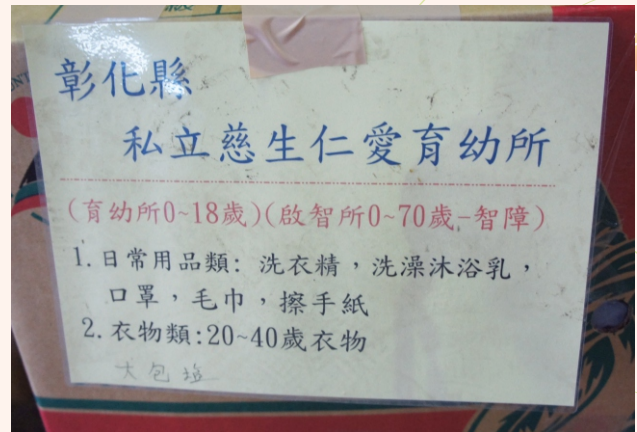 彰化縣
私立慈生仁愛育幼所
(育幼所0~18歲)(啟智所0~70歲-智障)
1. 日常用品類: 洗衣精，洗澡沐浴乳，
口罩，毛巾，擦手紙
2. 衣物類:20~40歲衣物
大包塩